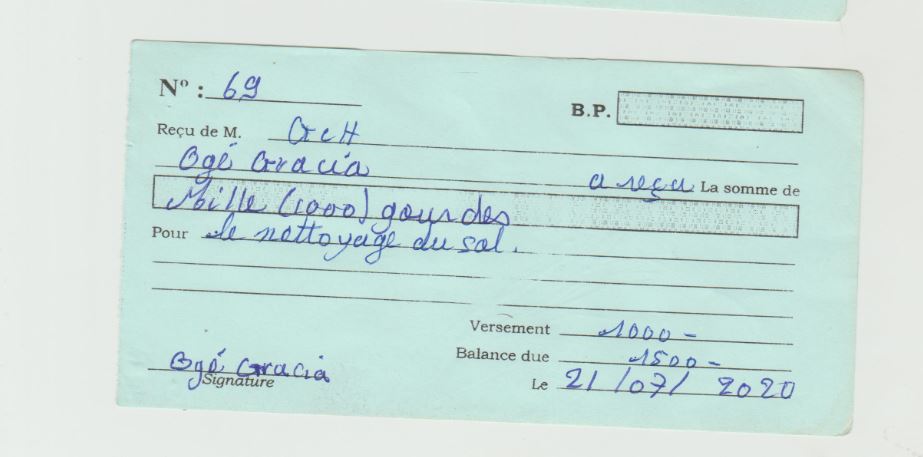 N° : 69
B.P.
Reçu de M. GCH
Ogé Gracia a reçu La somme de
Mille (1000) gourdes
Pour le nettoyage du sol.
Versement 1000 -
Balance due 1500 -
Ogé Gracia
Signature
Le 21/07/2020